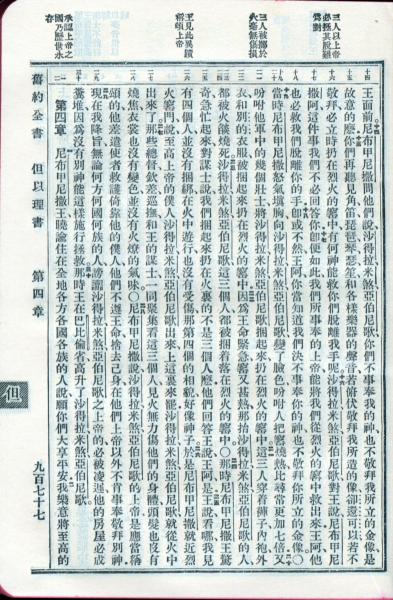 三人以上帝
必拯其脫離
三人被擲於
火毫無傷損
王見此異蹟
稱頌上帝
承認上帝之
國乃歷世永
存
王面前尼布甲尼撒問他們說沙得拉米煞亞伯尼歌你們不事奉我的神也不敬拜我所立的金像是
故意的麼你們再聽見角笛琵琶琴瑟笙和各樣樂器的聲音若俯伏敬拜我所造的像卻還可以若不
敬拜必立時扔在烈火的窰中有何神能救你們脫離我手呢沙得拉米煞亞伯尼歌對王說尼布甲尼
撒阿這件事我們不必回答你卽便如此我們所事奉的上帝能將我們從烈火的窰中救出來王阿他
也必救我們脫離你的手卽或不然王阿你當知道我們決不事奉你的神也不敬拜你所立的金像〇
當時尼布甲尼撒怒氣塡胸向沙得拉米煞亞伯尼歌變了臉色吩咐人把窰燒熱比尋常更加七倍又
吩咐他軍中的幾個壯士將沙得拉米煞亞伯尼歌捆起來扔在烈火的窰中這三人穿着褲子內袍外
衣和別的衣服被捆起來扔在烈火的窰中因爲王命緊急窰又甚熱那抬沙得拉米煞亞伯尼歌的人
都被火燄燒死沙得拉米煞亞伯尼歌這三個人都被捆着落在烈火的窰中〇那時尼布甲尼撒王驚
奇急忙起來對謀士說我們捆起來扔在火裏的不是三個人麼他們回答王說王阿是王說看哪我見
有四個人並沒有捆綁在火中遊行也沒有受傷那第四個的相貌好像神子於是尼布甲尼撒就近烈
火窰門說至高上帝的僕人沙得拉米煞亞伯尼歌出來上這裏來罷沙得拉米煞亞伯尼歌就從火中
出來了那些總督欽差巡撫和王的謀士一同聚集看這三個人見火無力傷他們的身體頭髮也沒有
燒焦衣裳也沒有變色並沒有火燎的氣味〇尼布甲尼撒說沙得拉米煞亞伯尼歌的上帝是應當稱
頌的他差遣使者救護倚靠他的僕人他們不遵王命捨去己身在他們上帝以外不肯事奉敬拜別神
現在我降旨無論何方何國何族的人謗讟沙得拉米煞亞伯尼歌之上帝的必被凌遲他的房屋必成
糞堆因爲沒有別神能這樣施行拯救那時王在巴比倫省高升了沙得拉米煞亞伯尼歌
第四章 尼布甲尼撒王曉諭住在全地各方各國各族的人說願你們大享平安我樂意將至高的
舊約全書 但以理書 第四章
但
九百七十七